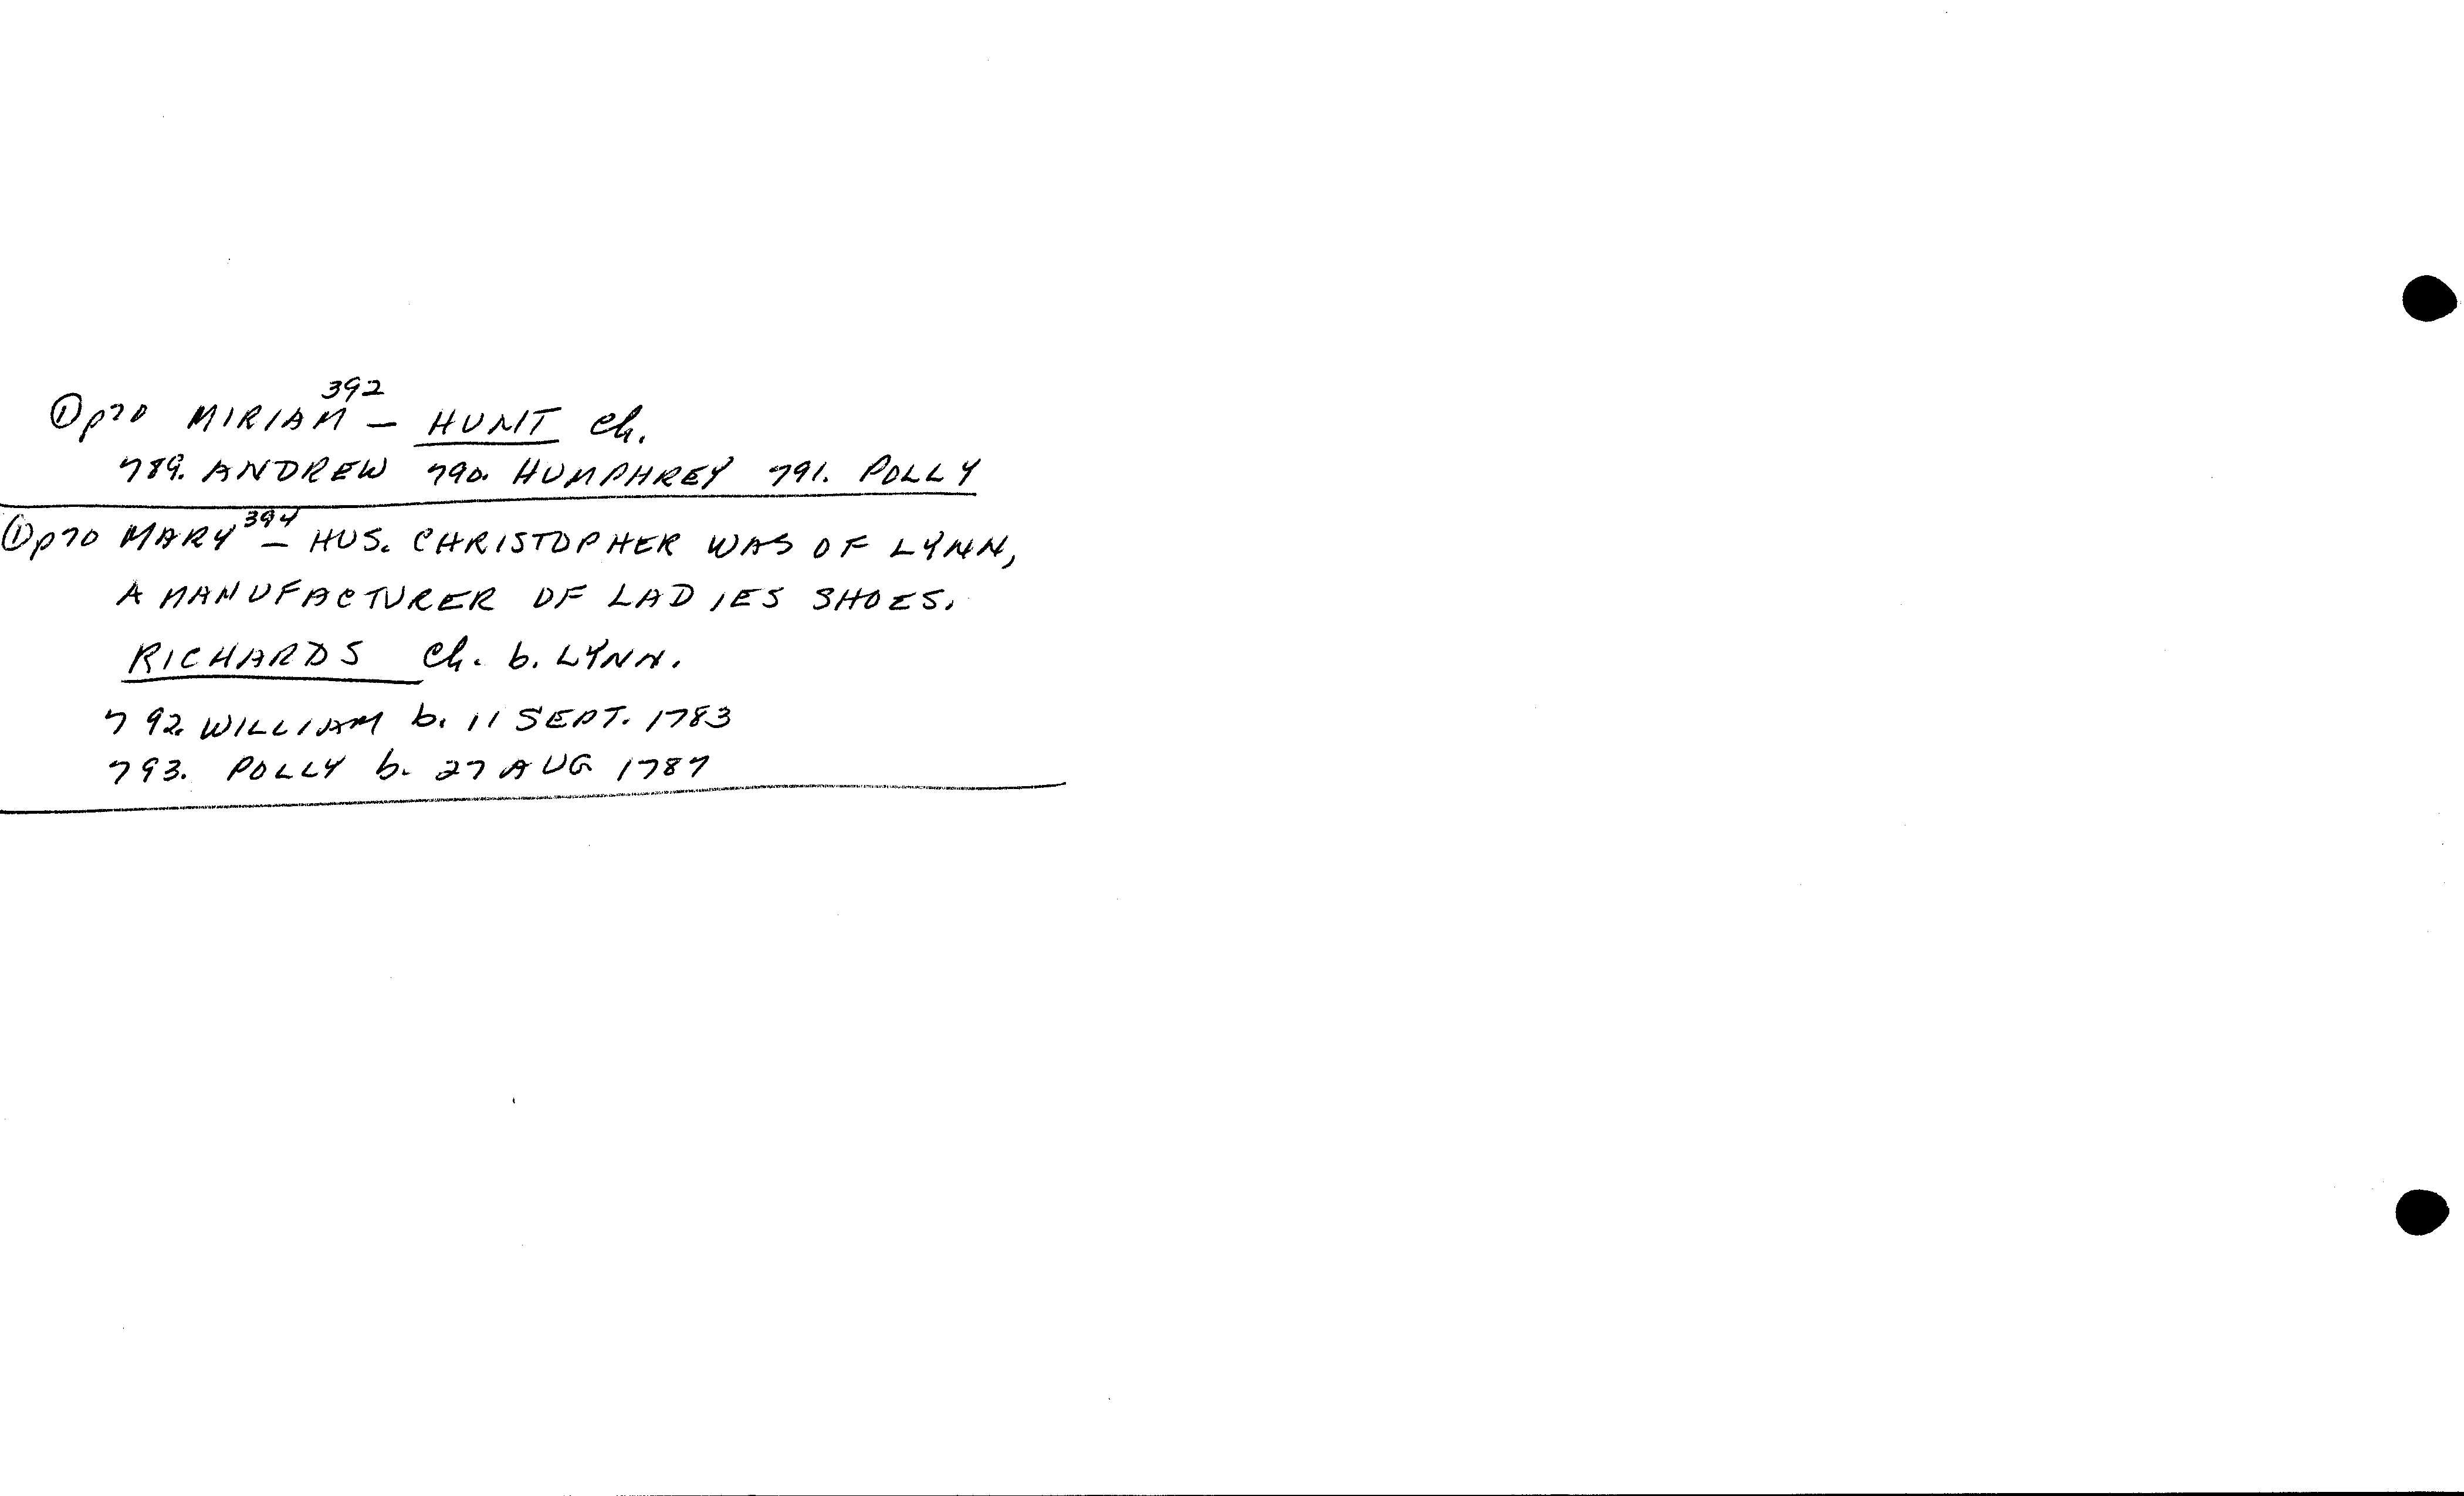 ① p70 MIRIAM³⁹² — HUNT ch.
789. ANDREW 790. HUMPHREY 791. POLLY
① p70 MARY³⁹⁴ — HUS. CHRISTOPHER WAS OF LYNN,
A MANUFACTURER OF LADIES SHOES.
RICHARDS ch. b. LYNN.
792. WILLIAM b. 11 SEPT. 1783
793. POLLY b. 27 AUG 1787